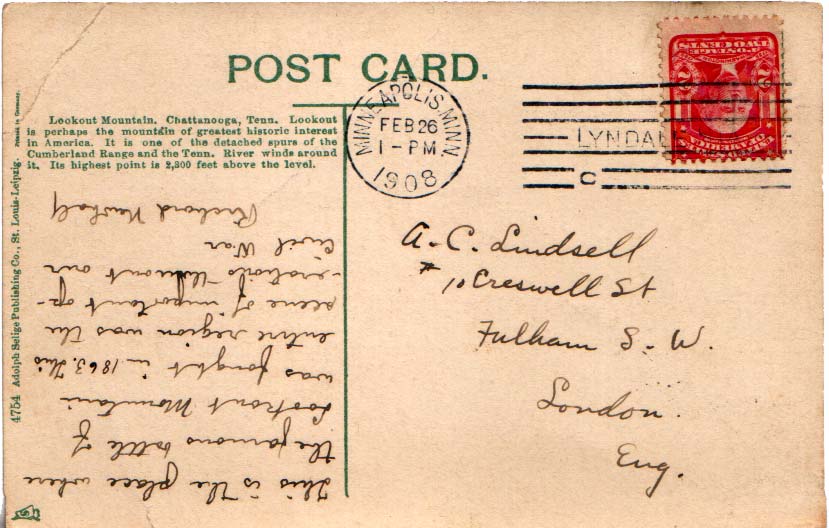 POST CARD.
Lookout Mountain. Chattanooga, Tenn. Lookout
is perhaps the mountain of greatest historic interest
in America. It is one of the detached spurs of the
Cumberland Range and the Tenn. River winds around
it. Its highest point is 2,300 feet above the level.
4754 Adolph Selige Publishing Co., St. Louis-Leipzig. Printed in Germany.
MINNEAPOLIS, MINN.
FEB 26
1 - PM
1908
LYNDAL
C
TWO CENTS
2 2
A. C. Lindsell
# 10 Creswell St
Fulham S. W.
London.
Eng.
This is the place where
the famous battle of
Lookout Mountain
was fought in 1863. This
entire region was the
scene of important op-
-erations throuout our
Civil War
Richard Newhall